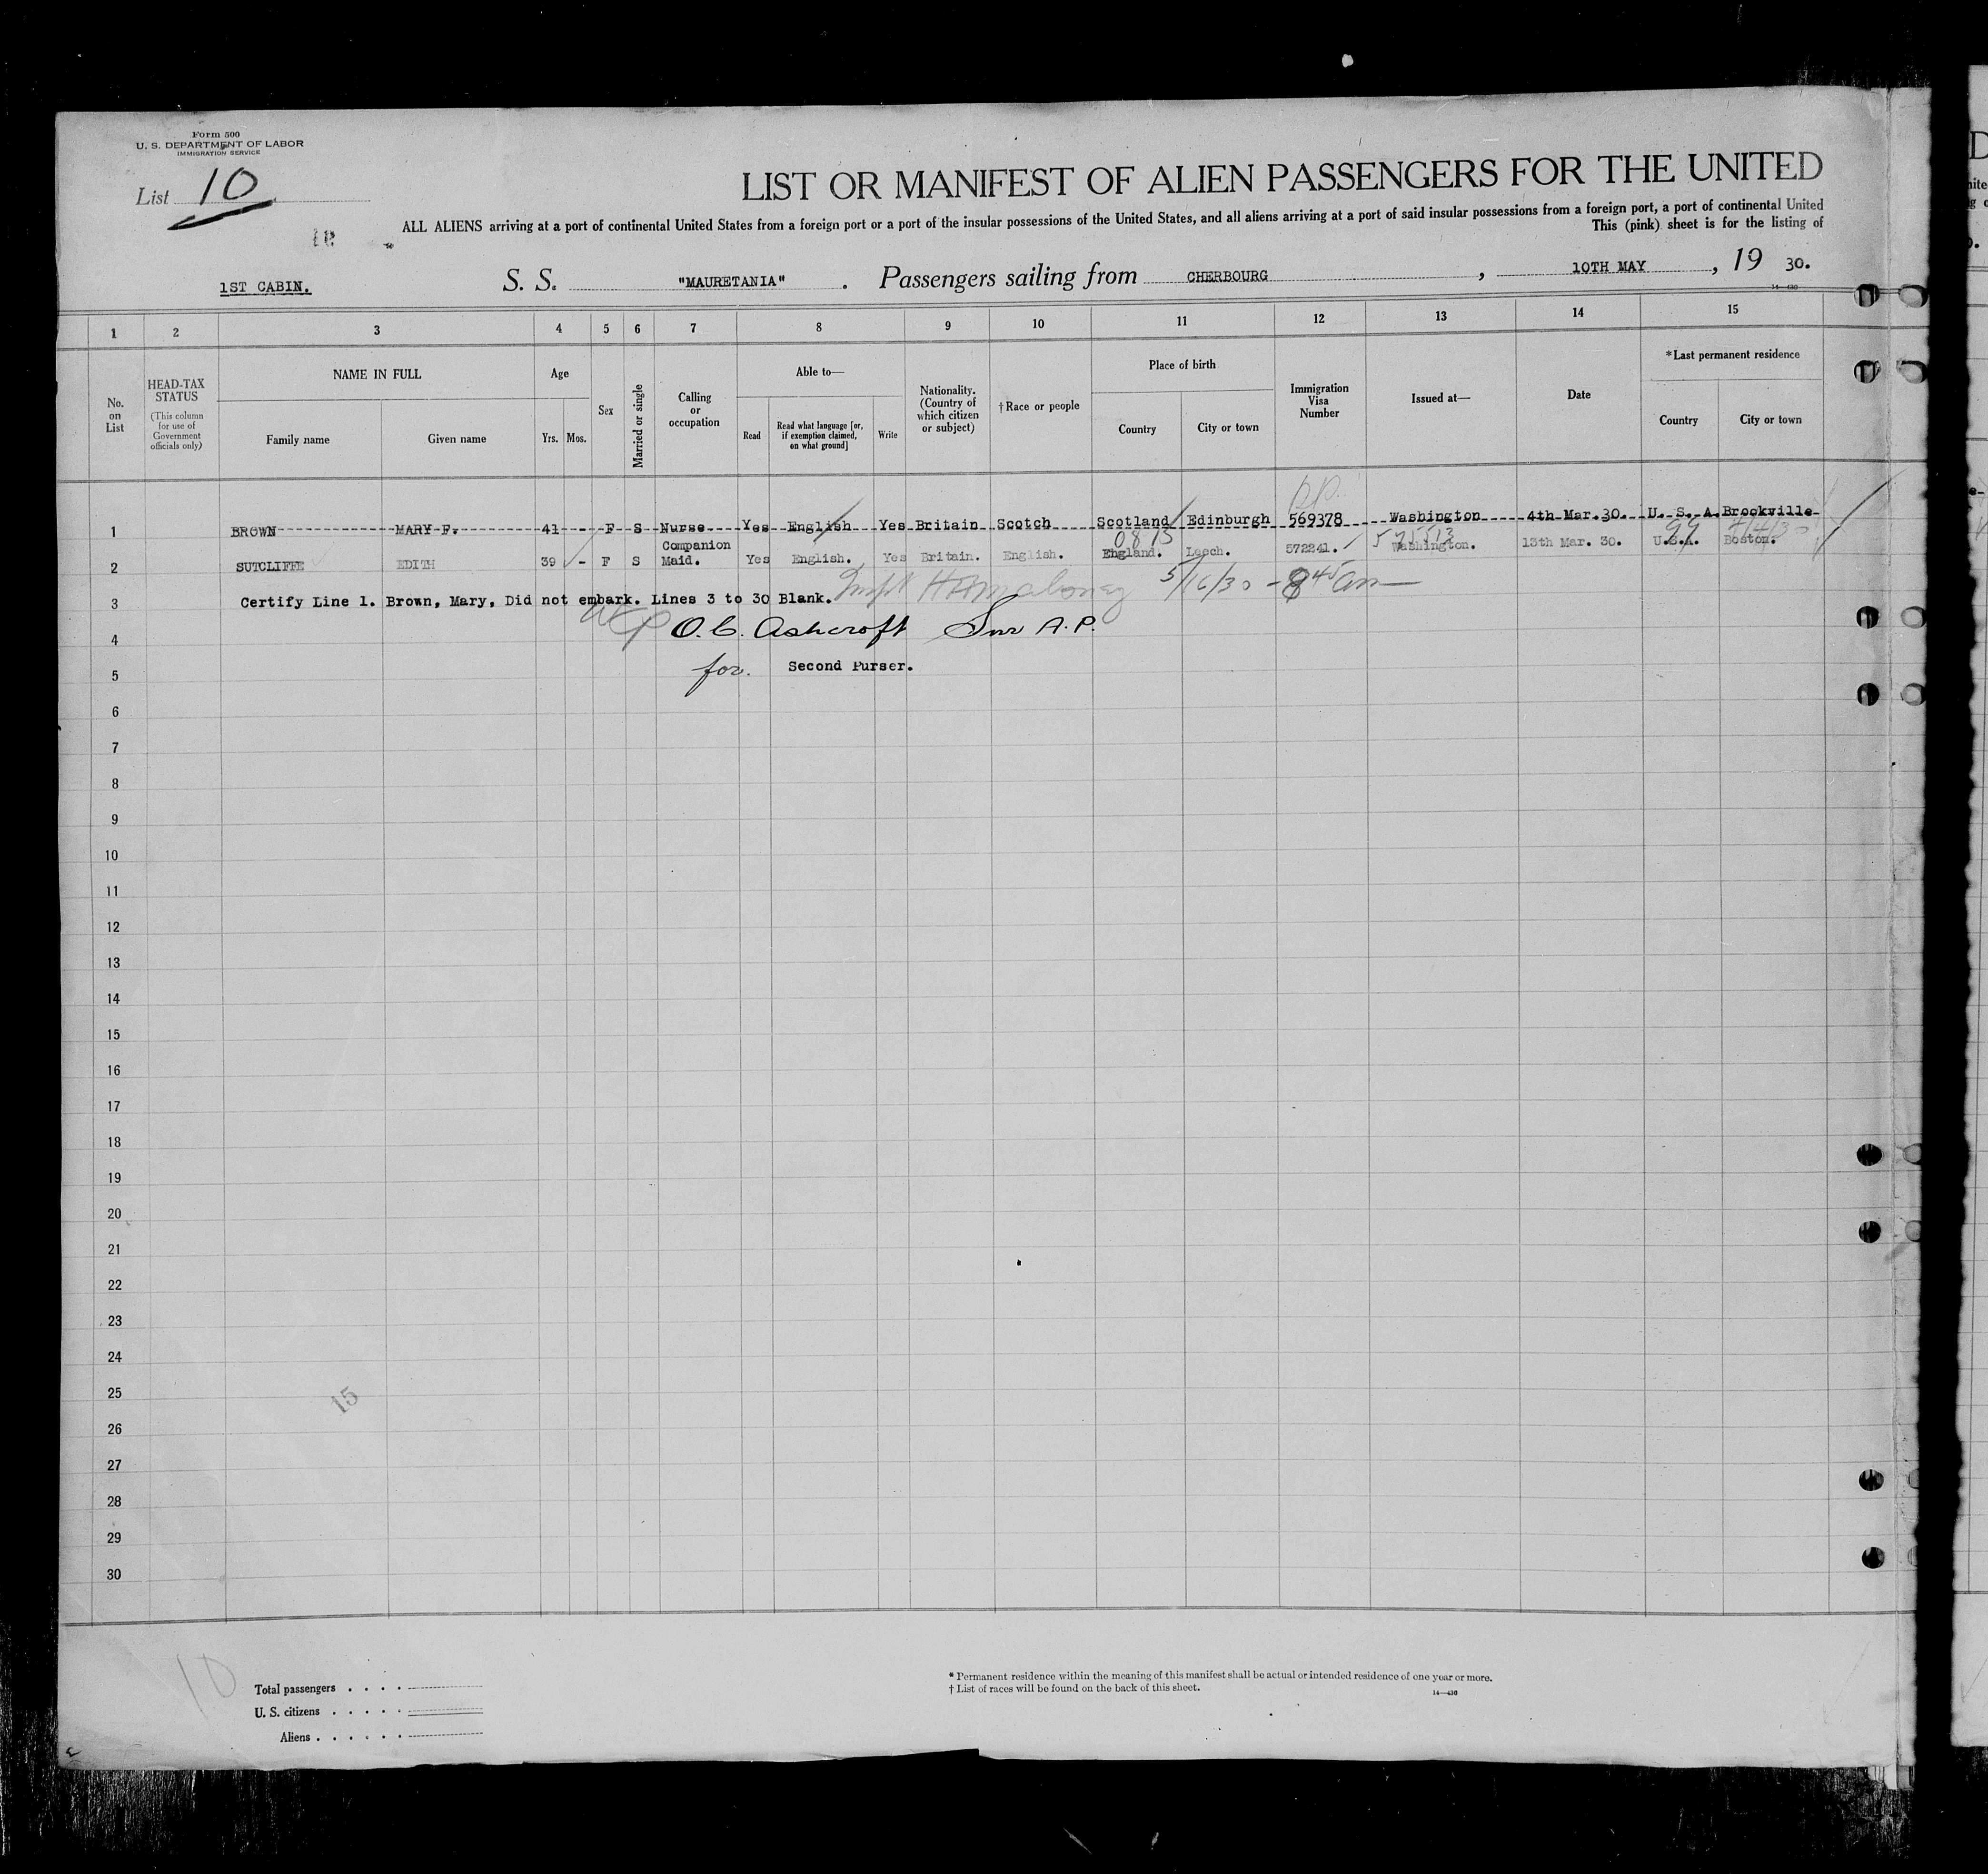 Form 500
U. S. DEPARTMENT OF LABOR
IMMIGRATION SERVICE
List 10
LIST OR MANIFEST OF ALIEN PASSENGERS FOR THE UNITED
ALL ALIENS arriving at a port of continental United States from a foreign port or a port of the insular possessions of the United States, and all aliens arriving at a port of said insular possessions from a foreign port, a port of continental United
This (pink) sheet is for the listing of
1ST CABIN. S. S. "MAURETANIA". Passengers sailing from CHERBOURG, 10TH MAY, 19 30.
14—430
1 2 3 4 5 6 7 8 9 10 11 12 13 14 15
No. on List
HEAD-TAX STATUS (This column for use of Government officials only)
NAME IN FULL
Family name Given name
Age
Yrs. Mos.
Sex
Married or single
Calling or occupation
Able to—
Read Read what language [or, if exemption claimed, on what ground] Write
Nationality. (Country of which citizen or subject)
†Race or people
Place of birth
Country City or town
Immigration Visa Number
Issued at—
Date
*Last permanent residence
Country City or town
1 BROWN MARY F. 41 - F S Nurse Yes English Yes Britain Scotch Scotland Edinburgh 569378 Washington 4th Mar. 30. U. S. A. Brookville
2 SUTCLIFFE EDITH 39 - F S Companion Maid. Yes English. Yes Britain. English. England. Leech. 572241. Washington. 13th Mar. 30. U.S.A. Boston.
5/16/30 - 8 45 am
3 Certify Line 1. Brown, Mary, Did not embark. Lines 3 to 30 Blank.
4 O. C. Ashcroft Snr A.P.
5 for. Second Purser.
6
7
8
9
10
11
12
13
14
15
16
17
18
19
20
21
22
23
24
25
15
26
27
28
29
30
10
Total passengers . . . .
U. S. citizens . . . . .
Aliens . . . . . .
* Permanent residence within the meaning of this manifest shall be actual or intended residence of one year or more.
† List of races will be found on the back of this sheet.
14—430